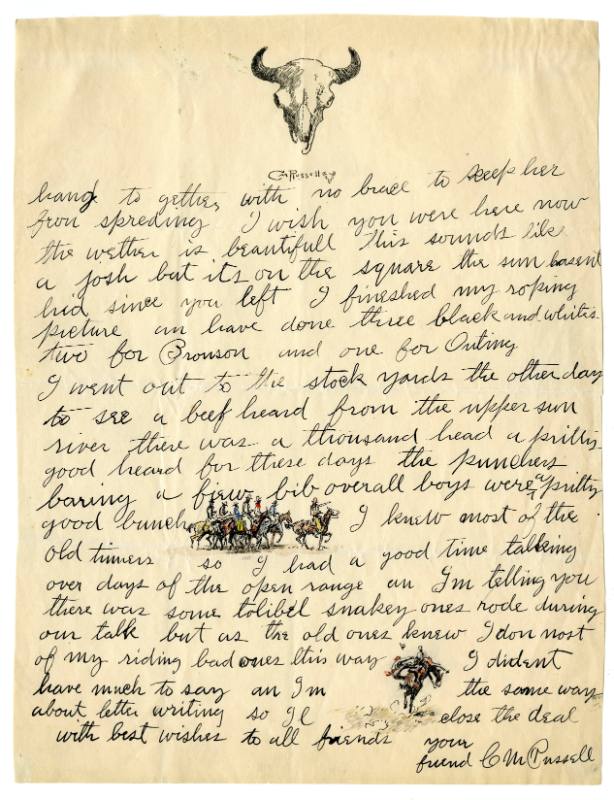 CM Russell
hang to gether with no brace to keep her
from spreding I wish you were here now
the wether is beautifull this sounds like
a josh but its on the square the sun hasent
hid since you left I fineshed my roping
picture an have done three black and whites
two for Bronson and one for Outing
I went out to the stock yards the other day
to see a beef heard from the upper sun
river there was a thousand head a pritty
good heard for these days the punchers
baring a fiew bib overall boys were a pritty
good bunch I knew most of the
old timers so I had a good time talking
over days of the open range an Im telling you
there was some tolibel snakey ones rode during
our talk but as the old ones knew I don most
of my riding bad ones this way I dident
have much to say an Im the same way
about letter writing so Il close the deal
with best wishes to all friends your
friend CM Russell